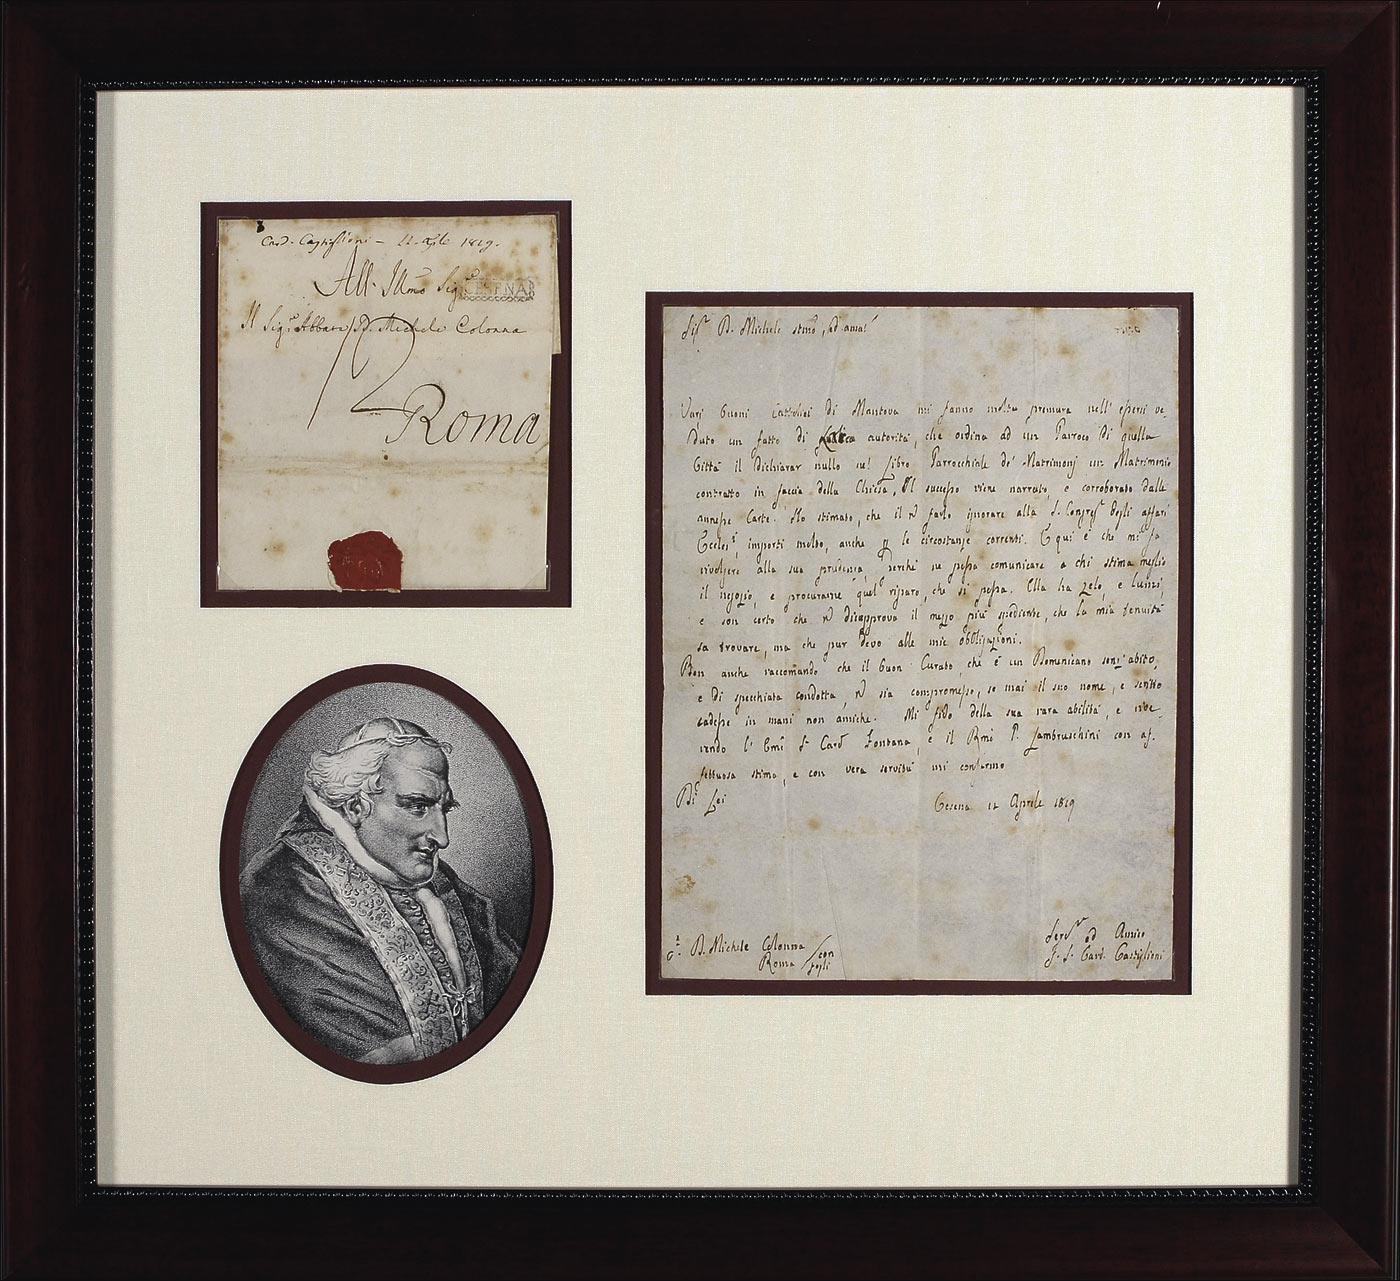 Card. Castiglioni — 11 Aple 1819.
All' Illmo Sigre
CESENA
Il Sigr Abbate D. Michele Colonna
12
Roma
Sigr D. Michele stmo, ed ama
Varj buoni Cattolici di Mantova mi fanno molta premura nell' esservi ve-
duto un fatto di autorità, che ordina ad un Parroco di quella
Città il dichiarar nullo sul Libro Parrocchiale de' Matrimonj un Matrimonio
contratto in faccia della Chiesa. Il successo viene narrato, e corroborato dalle
annesse Carte. Ho stimato, che il ñ farlo ignorare alla S. Congreg degli affari
Eccles, importi molto, anche p le circostanze correnti. E qui è che mi fa
rivolgere alla sua prudenza, perchè ne possa comunicare a chi stima meglio
il negozio, e procurarne quel riparo, che si possa. Ella ha zelo, e lumi,
e son certo che ñ disapprova il mezzo più spediente, che la mia tenuità
sa trovare, ma che pur devo alle mie obbligazioni.
Ben anche raccomando che il buon Curato, che è un Domenicano senz' abito,
e di specchiata condotta, ñ sia compromesso, se mai il suo nome, e scritto
cadesse in mani non amiche. Mi fido della sua rara abilità, e rive-
rendo l' Emo Sr Card Fontana, e il Rmo P. Lambruschini con af-
fettuosa stima, e con vera servitù mi confermo
Di Lei
Cesena 11 Aprile 1819
D. Michele Colonna
Roma
con
fogli
Servr ed Amico
F. S. Card. Castiglioni